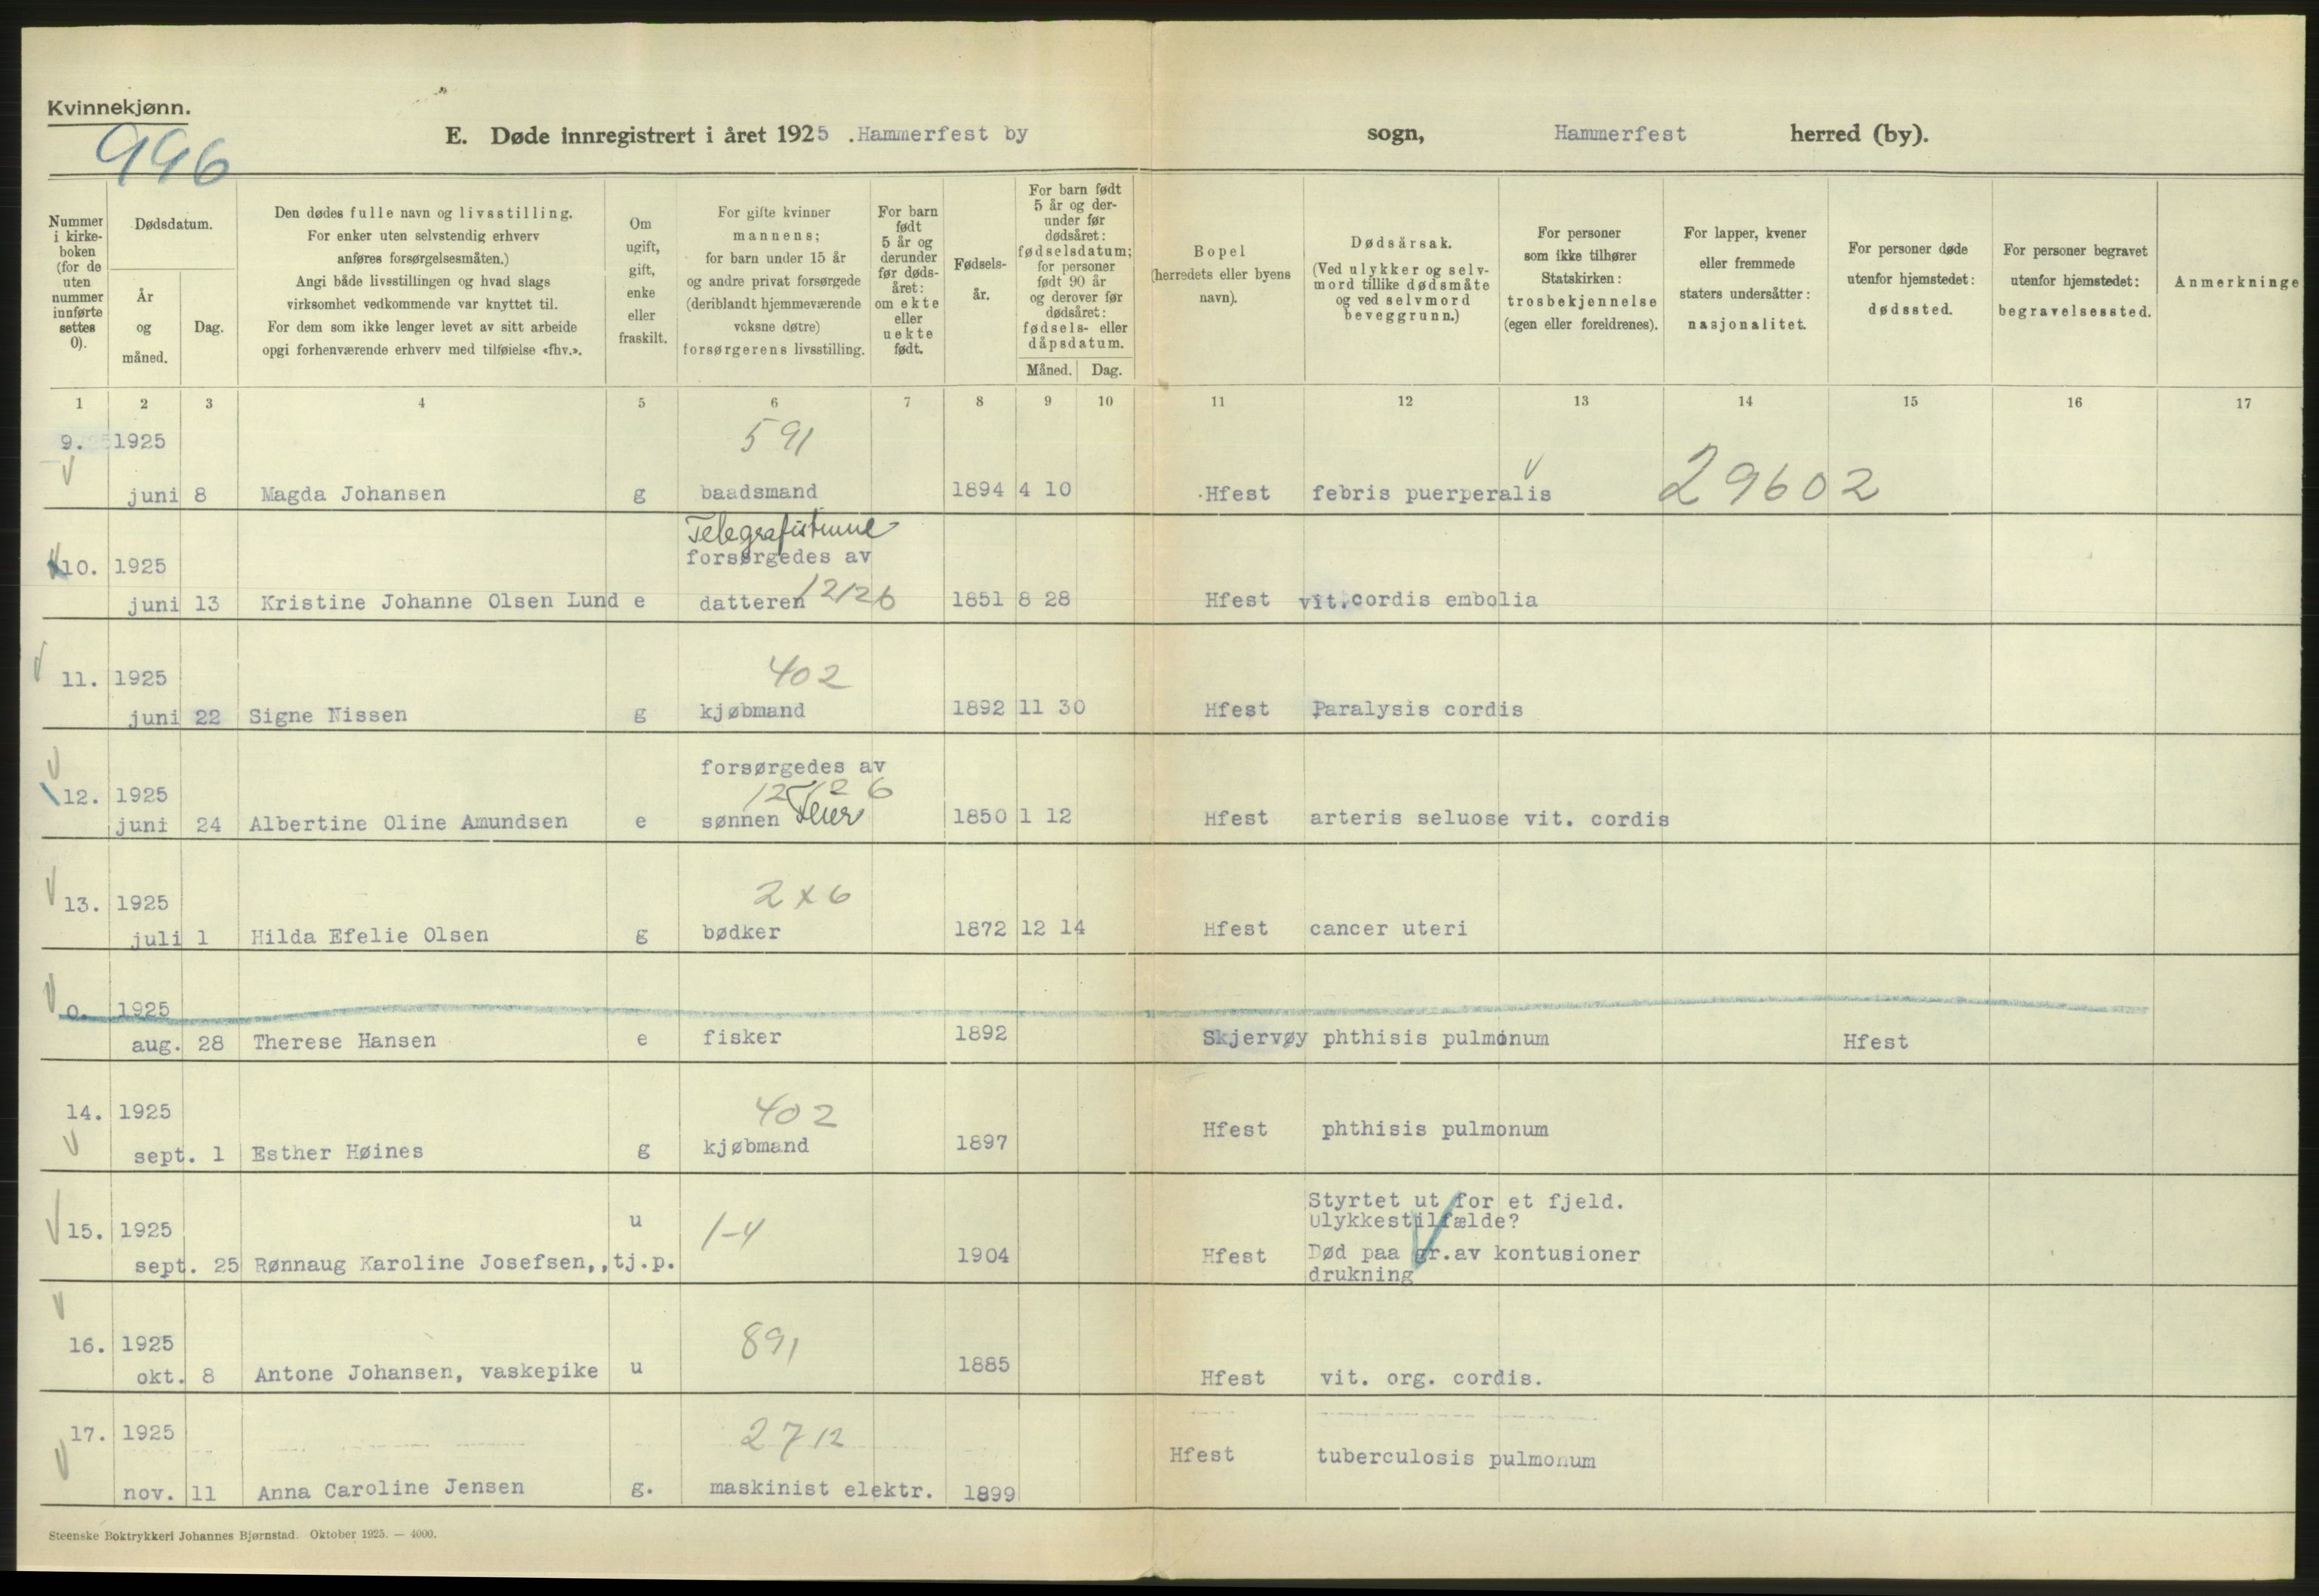 Kvinnekjønn.
996
E. Døde innregistrert i året 1925 . Hammerfest by sogn, Hammerfest herred (by).
Nummer i kirke-boken (for de uten nummer innførte settes 0).
Dødsdatum.
År og måned.
Dag.
Den dødes fulle navn og livsstilling.
For enker uten selvstendig erhverv
anføres forsørgelsesmåten.)
Angi både livsstillingen og hvad slags
virksomhet vedkommende var knyttet til.
For dem som ikke lenger levet av sitt arbeide
opgi forhenværende erhverv med tilføielse «fhv.».
Om ugift, gift, enke eller fraskilt.
For gifte kvinner
mannens;
for barn under 15 år
og andre privat forsørgede
(deriblandt hjemmeværende
voksne døtre)
forsørgerens livsstilling.
For barn født 5 år og derunder før døds-året: om ekte eller uekte født.
Fødsels-år.
For barn født
5 år og der-
under før
dødsåret:
fødselsdatum;
for personer
født 90 år
og derover før
dødsåret:
fødsels- eller
dåpsdatum.
Måned. Dag.
Bopel
(herredets eller byens
navn).
Dødsårsak.
(Ved ulykker og selv-
mord tillike dødsmåte
og ved selvmord
beveggrunn.)
For personer
som ikke tilhører
Statskirken:
trosbekjennelse
(egen eller foreldrenes).
For lapper, kvener
eller fremmede
staters undersåtter:
nasjonalitet.
For personer døde
utenfor hjemstedet:
dødssted.
For personer begravet
utenfor hjemstedet:
begravelsessted.
Anmerkninge
1 2 3 4 5 6 7 8 9 10 11 12 13 14 15 16 17
9. 1925 591
juni 8 Magda Johansen g baadsmand 1894 4 10 Hfest febris puerperalis 29602
Telegrafistinne
forsørgedes av
10. 1925
juni 13 Kristine Johanne Olsen Lund e datteren 12126 1851 8 28 Hfest vit.cordis embolia
402
11. 1925
juni 22 Signe Nissen g kjøbmand 1892 11 30 Hfest Paralysis cordis
forsørgedes av
12. 1925 12126
juni 24 Albertine Oline Amundsen e sønnen 1850 1 12 Hfest arteris seluose vit. cordis
2x6
13. 1925
juli 1 Hilda Efelie Olsen g bødker 1872 12 14 Hfest cancer uteri
0. 1925
aug. 28 Therese Hansen e fisker 1892 Skjervøy phthisis pulmonum Hfest
14. 1925 402
sept. 1 Esther Høines g kjøbmand 1897 Hfest phthisis pulmonum
Styrtet ut for et fjeld.
15. 1925 u 1-4 Ulykkestilfælde?
sept. 25 Rønnaug Karoline Josefsen,,tj.p. 1904 Hfest Død paa gr.av kontusioner
drukning
16. 1925 891
okt. 8 Antone Johansen, vaskepike u 1885 Hfest vit. org. cordis.
17. 1925 2712
Hfest tuberculosis pulmonum
nov. 11 Anna Caroline Jensen g. maskinist elektr. 1899
Steenske Boktrykkeri Johannes Bjørnstad. Oktober 1925. — 4000.